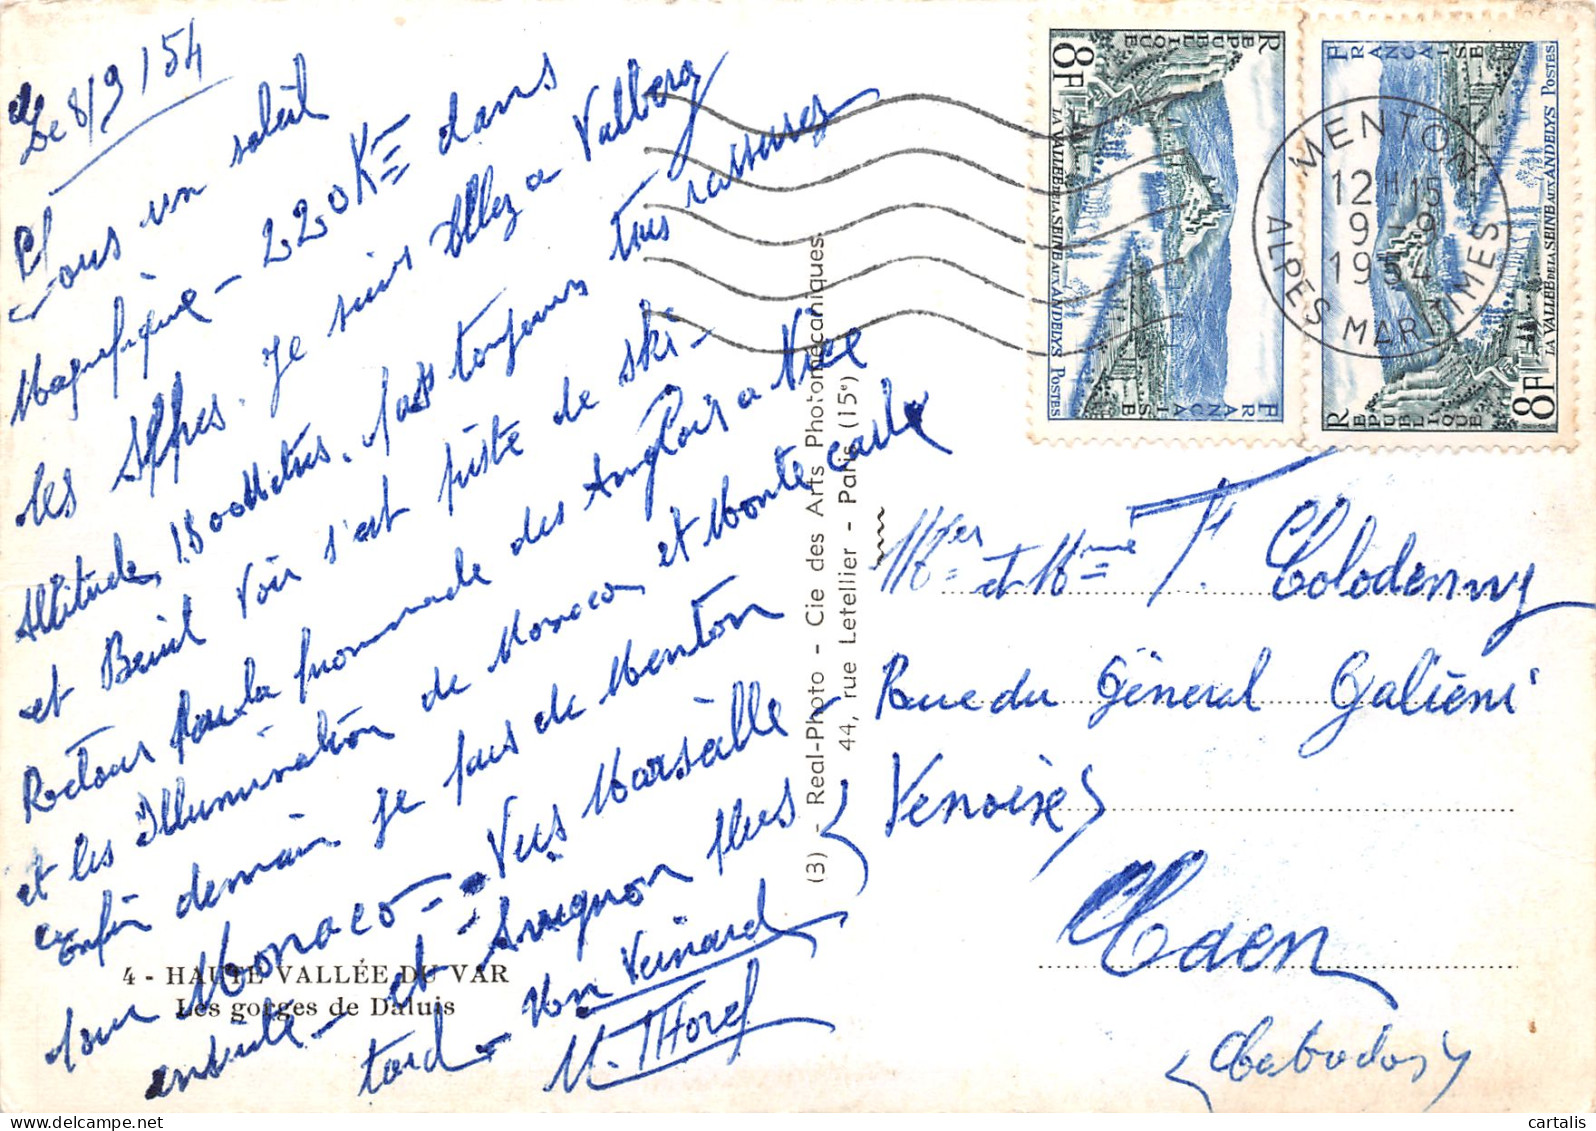 Le 8/9/54
Sous un soleil
Magnifique - 220 K dans
les Alpes. Je suis Allez a Valberg
Altitude, 1800 Metres. fait toujours tres rassurez
et Beuil Voir s'est piste de ski -
Retour par la promenade des Anglais a Nice
et les Illumination de Monaco et Monte carlo
Enfin demain je pars de Menton
pour Monaco = Vers Marseille -
ensuite - et - Avignon plus
tard - Mr Veinard
4 - HAUTE VALLÉE DU VAR
Les gorges de Daluis
(3) - Real-Photo - Cie des Arts Photomécaniques
44, rue Letellier - Paris (15e)
RÉPUBLIQUE FRANÇAISE
8F
LA VALLÉE DE LA SEINE AUX ANDELYS POSTES
RÉPUBLIQUE FRANÇAISE
8F
LA VALLÉE DE LA SEINE AUX ANDELYS POSTES
MENTON
12H15
9-9
1954
ALPES MARITIMES
et Mme T. Colodenny
Rue du Général Galiéni
(Venoix)
Caen
(Cabados)
cartalis